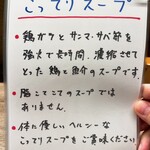 こってりスープ
• 鶏ガラとサンマ・サバ節を
強火で長時間、濃縮させて
とった鶏と魚介のスープです。
• 脂こてこてのスープでは
ありません。
• 体に優しいヘルシーな
こってりスープをご賞味ください